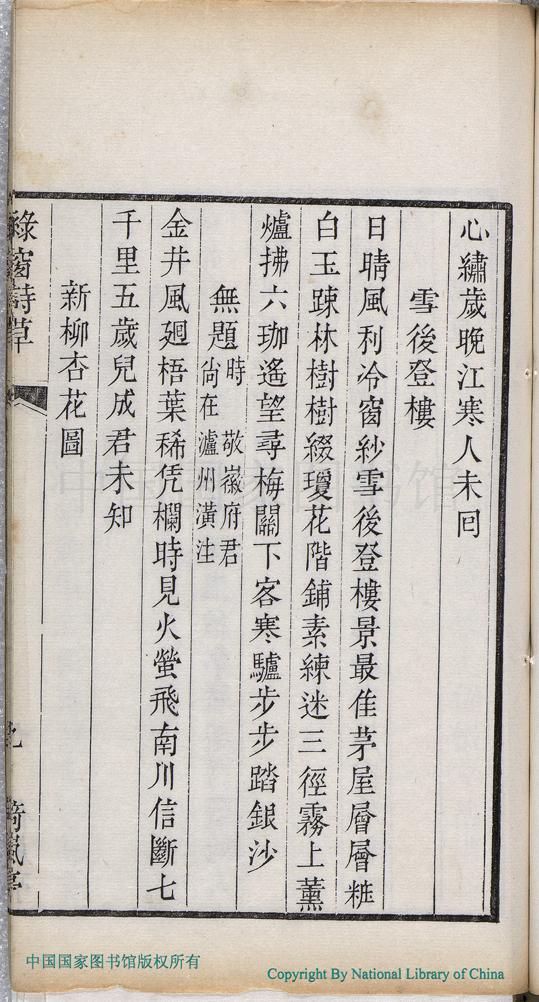 心繡歲晚江寒人未囘
雪後登樓
日晴風利冷窗紗雪後登樓景最佳茅屋層層粧
白玉踈林樹樹綴瓊花階鋪素練迷三徑霧上薰
爐拂六珈遙望尋梅關下客寒驢步步踏銀沙
無題時敬嶶府君
尙在瀘州潢注
金井風廻梧葉稀凭欄時見火螢飛南川信斷七
千里五歲兒成君未知
新柳杏花圖
綠窗詩草
中国国家图书馆
中国国家图书馆版权所有
Copyright By National Library of China